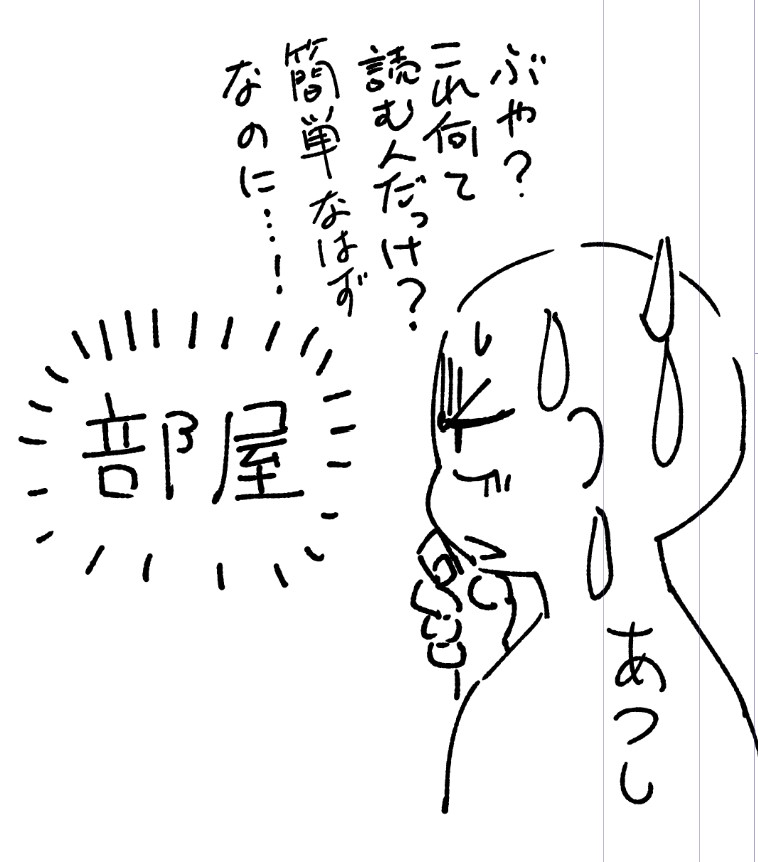 ぶや？
これ何て
読む人だっけ？
簡単なはず
なのに…！
部屋
あつし